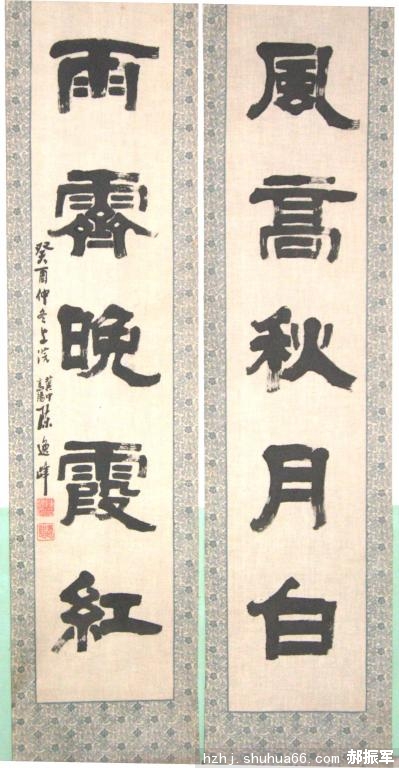 風高秋月白
雨霽晚霞紅
癸酉仲冬上浣
冀中
高陽
陳逸峰
hzhj.shuhua66.com
郝振军